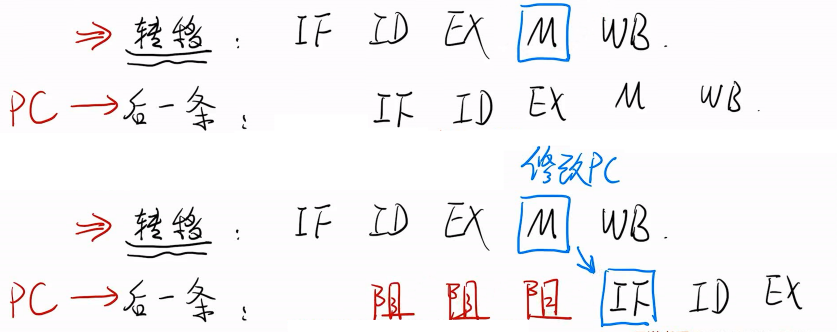 ⇒ 转移: IF ID EX M WB.
PC → 后一条: IF ID EX M WB.
修改PC
⇒ 转移: IF ID EX M WB.
PC → 后一条: 阻 阻 阻 IF ID EX